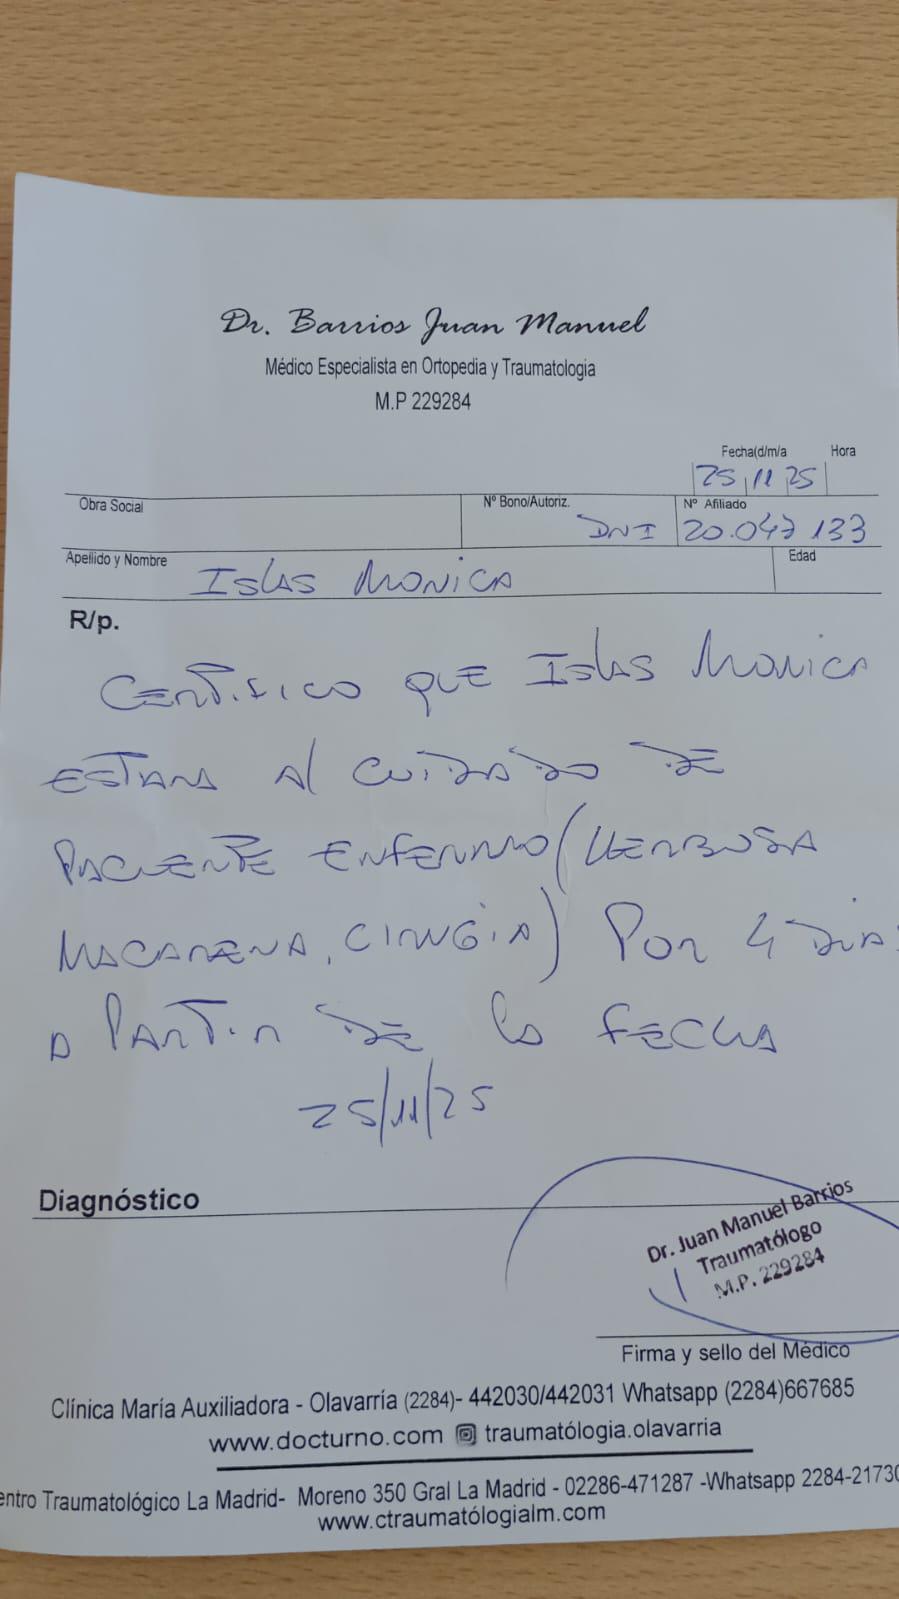 Dr. Barrios Juan Manuel
Médico Especialista en Ortopedia y Traumatologia
M.P 229284
Fecha(d/m/a Hora
25 11 25
Obra Social Nº Bono/Autoriz. Nº Afiliado
DNI 20.047 133
Apellido y Nombre Islas Monica Edad
R/p.
Certifico que Islas Monica
estara al cuidado de
paciente enfermo (
Macarena, cirugia) por 4 dia
a partir de la fecha
25/11/25
Diagnóstico
Dr. Juan Manuel Barrios
Traumatólogo
M.P. 229284
Firma y sello del Médico
Clínica María Auxiliadora - Olavarría (2284)- 442030/442031 Whatsapp (2284)667685
www.docturno.com traumatólogia.olavarria
entro Traumatológico La Madrid- Moreno 350 Gral La Madrid - 02286-471287 -Whatsapp 2284-21730
www.ctraumatólogialm.com